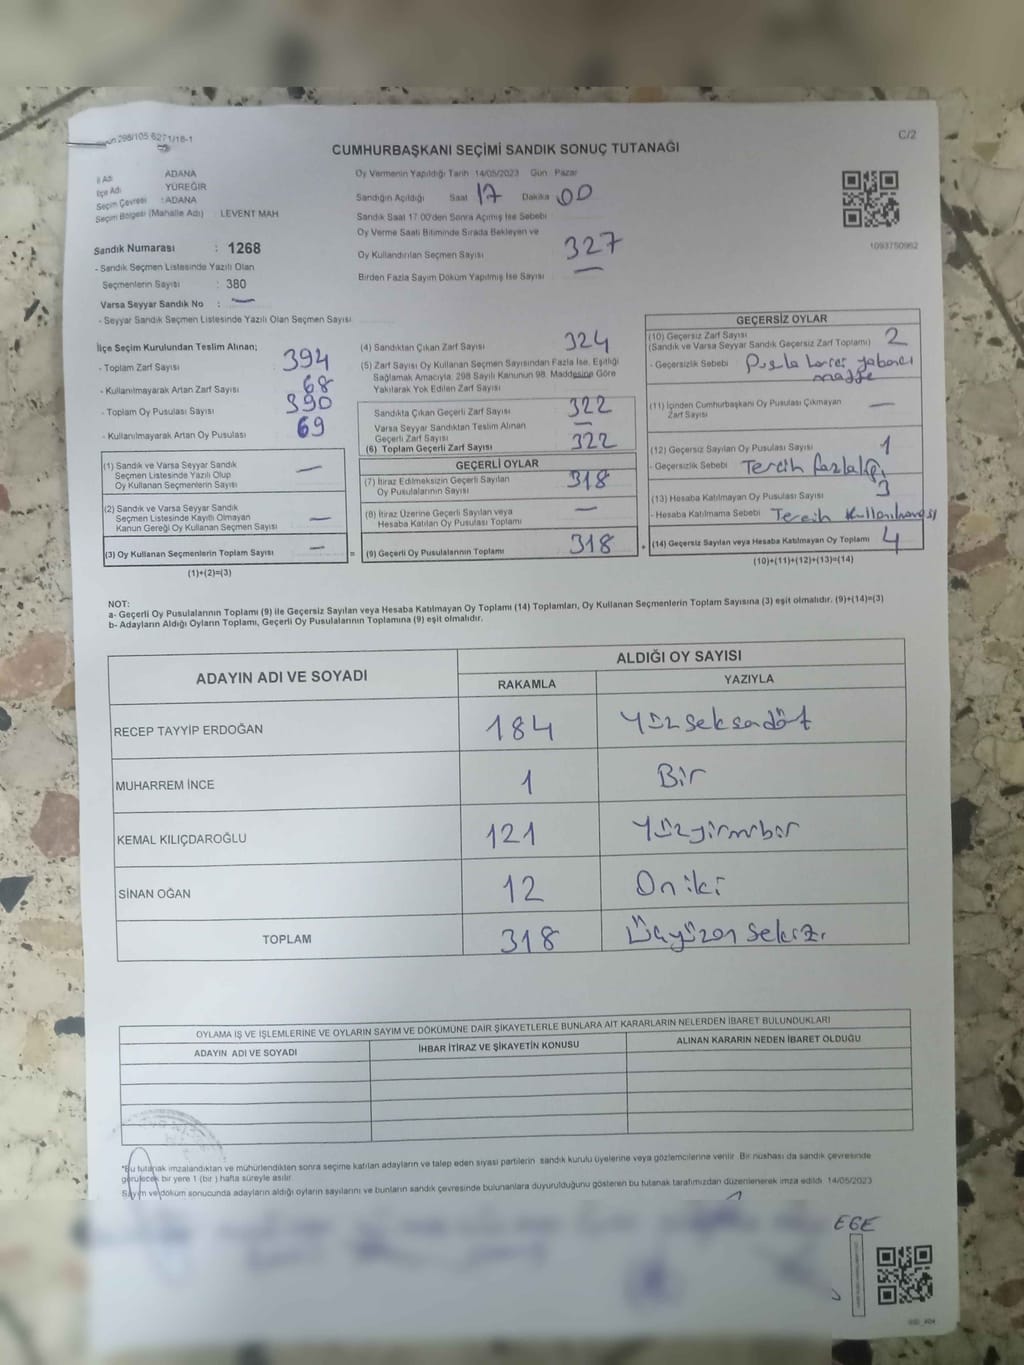 298/105 6271/18-1
C/2
CUMHURBAŞKANI SEÇİMİ SANDIK SONUÇ TUTANAĞI
İl Adı ADANA
İlçe Adı YÜREĞİR
Seçim Çevresi : ADANA
Seçim Bölgesi (Mahalle Adı) : LEVENT MAH
Sandık Numarası : 1268
- Sandık Seçmen Listesinde Yazılı Olan
Seçmenlerin Sayısı : 380
Varsa Seyyar Sandık No : —
- Seyyar Sandık Seçmen Listesinde Yazılı Olan Seçmen Sayısı
Oy Vermenin Yapıldığı Tarih 14/05/2023 Gün Pazar
Sandığın Açıldığı Saat 17 Dakika 00
Sandık Saat 17.00'den Sonra Açılmış İse Sebebi
Oy Verme Saati Bitiminde Sırada Bekleyen ve
Oy Kullandırılan Seçmen Sayısı 327
Birden Fazla Sayım Döküm Yapılmış İse Sayısı —
1093750962
İlçe Seçim Kurulundan Teslim Alınan;
- Toplam Zarf Sayısı 394
- Kullanılmayarak Artan Zarf Sayısı 68
- Toplam Oy Pusulası Sayısı 390
- Kullanılmayarak Artan Oy Pusulası 69
(1) Sandık ve Varsa Seyyar Sandık
Seçmen Listesinde Yazılı Olup
Oy Kullanan Seçmenlerin Sayısı —
(2) Sandık ve Varsa Seyyar Sandık
Seçmen Listesinde Kayıtlı Olmayan
Kanun Gereği Oy Kullanan Seçmen Sayısı —
(3) Oy Kullanan Seçmenlerin Toplam Sayısı —
(1)+(2)=(3)
(4) Sandıktan Çıkan Zarf Sayısı 324
(5) Zarf Sayısı Oy Kullanan Seçmen Sayısından Fazla İse, Eşitliği
Sağlamak Amacıyla; 298 Sayılı Kanunun 98. Maddesine Göre
Yakılarak Yok Edilen Zarf Sayısı —
Sandıkta Çıkan Geçerli Zarf Sayısı 322
Varsa Seyyar Sandıktan Teslim Alınan
Geçerli Zarf Sayısı —
(6) Toplam Geçerli Zarf Sayısı 322
GEÇERLİ OYLAR
(7) İtiraz Edilmeksizin Geçerli Sayılan
Oy Pusulalarının Sayısı 318
(8) İtiraz Üzerine Geçerli Sayılan veya
Hesaba Katılan Oy Pusulası Toplamı —
= (9) Geçerli Oy Pusulalarının Toplamı 318
GEÇERSİZ OYLAR
(10) Geçersiz Zarf Sayısı
(Sandık ve Varsa Seyyar Sandık Geçersiz Zarf Toplamı) 2
- Geçersizlik Sebebi yabancı
madde
(11) İçinden Cumhurbaşkanı Oy Pusulası Çıkmayan
Zarf Sayısı —
(12) Geçersiz Sayılan Oy Pusulası Sayısı 1
- Geçersizlik Sebebi Tercih fazlalığı
(13) Hesaba Katılmayan Oy Pusulası Sayısı 3
- Hesaba Katılmama Sebebi Tercih
+ (14) Geçersiz Sayılan veya Hesaba Katılmayan Oy Toplamı 4
(10)+(11)+(12)+(13)=(14)
NOT:
a- Geçerli Oy Pusulalarının Toplamı (9) ile Geçersiz Sayılan veya Hesaba Katılmayan Oy Toplamı (14) Toplamları, Oy Kullanan Seçmenlerin Toplam Sayısına (3) eşit olmalıdır. (9)+(14)=(3)
b- Adayların Aldığı Oyların Toplamı, Geçerli Oy Pusulalarının Toplamına (9) eşit olmalıdır.
ADAYIN ADI VE SOYADI ALDIĞI OY SAYISI
RAKAMLA YAZIYLA
RECEP TAYYİP ERDOĞAN 184 Yüzseksadört
MUHARREM İNCE 1 Bir
KEMAL KILIÇDAROĞLU 121 Yüzyirmibir
SİNAN OĞAN 12 Oniki
TOPLAM 318 Üçyüzon sekiz
OYLAMA İŞ VE İŞLEMLERİNE VE OYLARIN SAYIM VE DÖKÜMÜNE DAİR ŞİKAYETLERLE BUNLARA AİT KARARLARIN NELERDEN İBARET BULUNDUKLARI
ADAYIN ADI VE SOYADI İHBAR İTİRAZ VE ŞİKAYETİN KONUSU ALINAN KARARIN NEDEN İBARET OLDUĞU
*Bu tutanak imzalandıktan ve mühürlendikten sonra seçime katılan adayların ve talep eden siyasi partilerin sandık kurulu üyelerine veya gözlemcilerine verilir. Bir nüshası da sandık çevresinde
görülecek bir yere 1 (bir) hafta süreyle asılır.
Sayım ve döküm sonucunda adayların aldığı oyların sayılarını ve bunların sandık çevresinde bulunanlara duyurulduğunu gösteren bu tutanak tarafımızdan düzenlenerek imza edildi. 14/05/2023
EGE